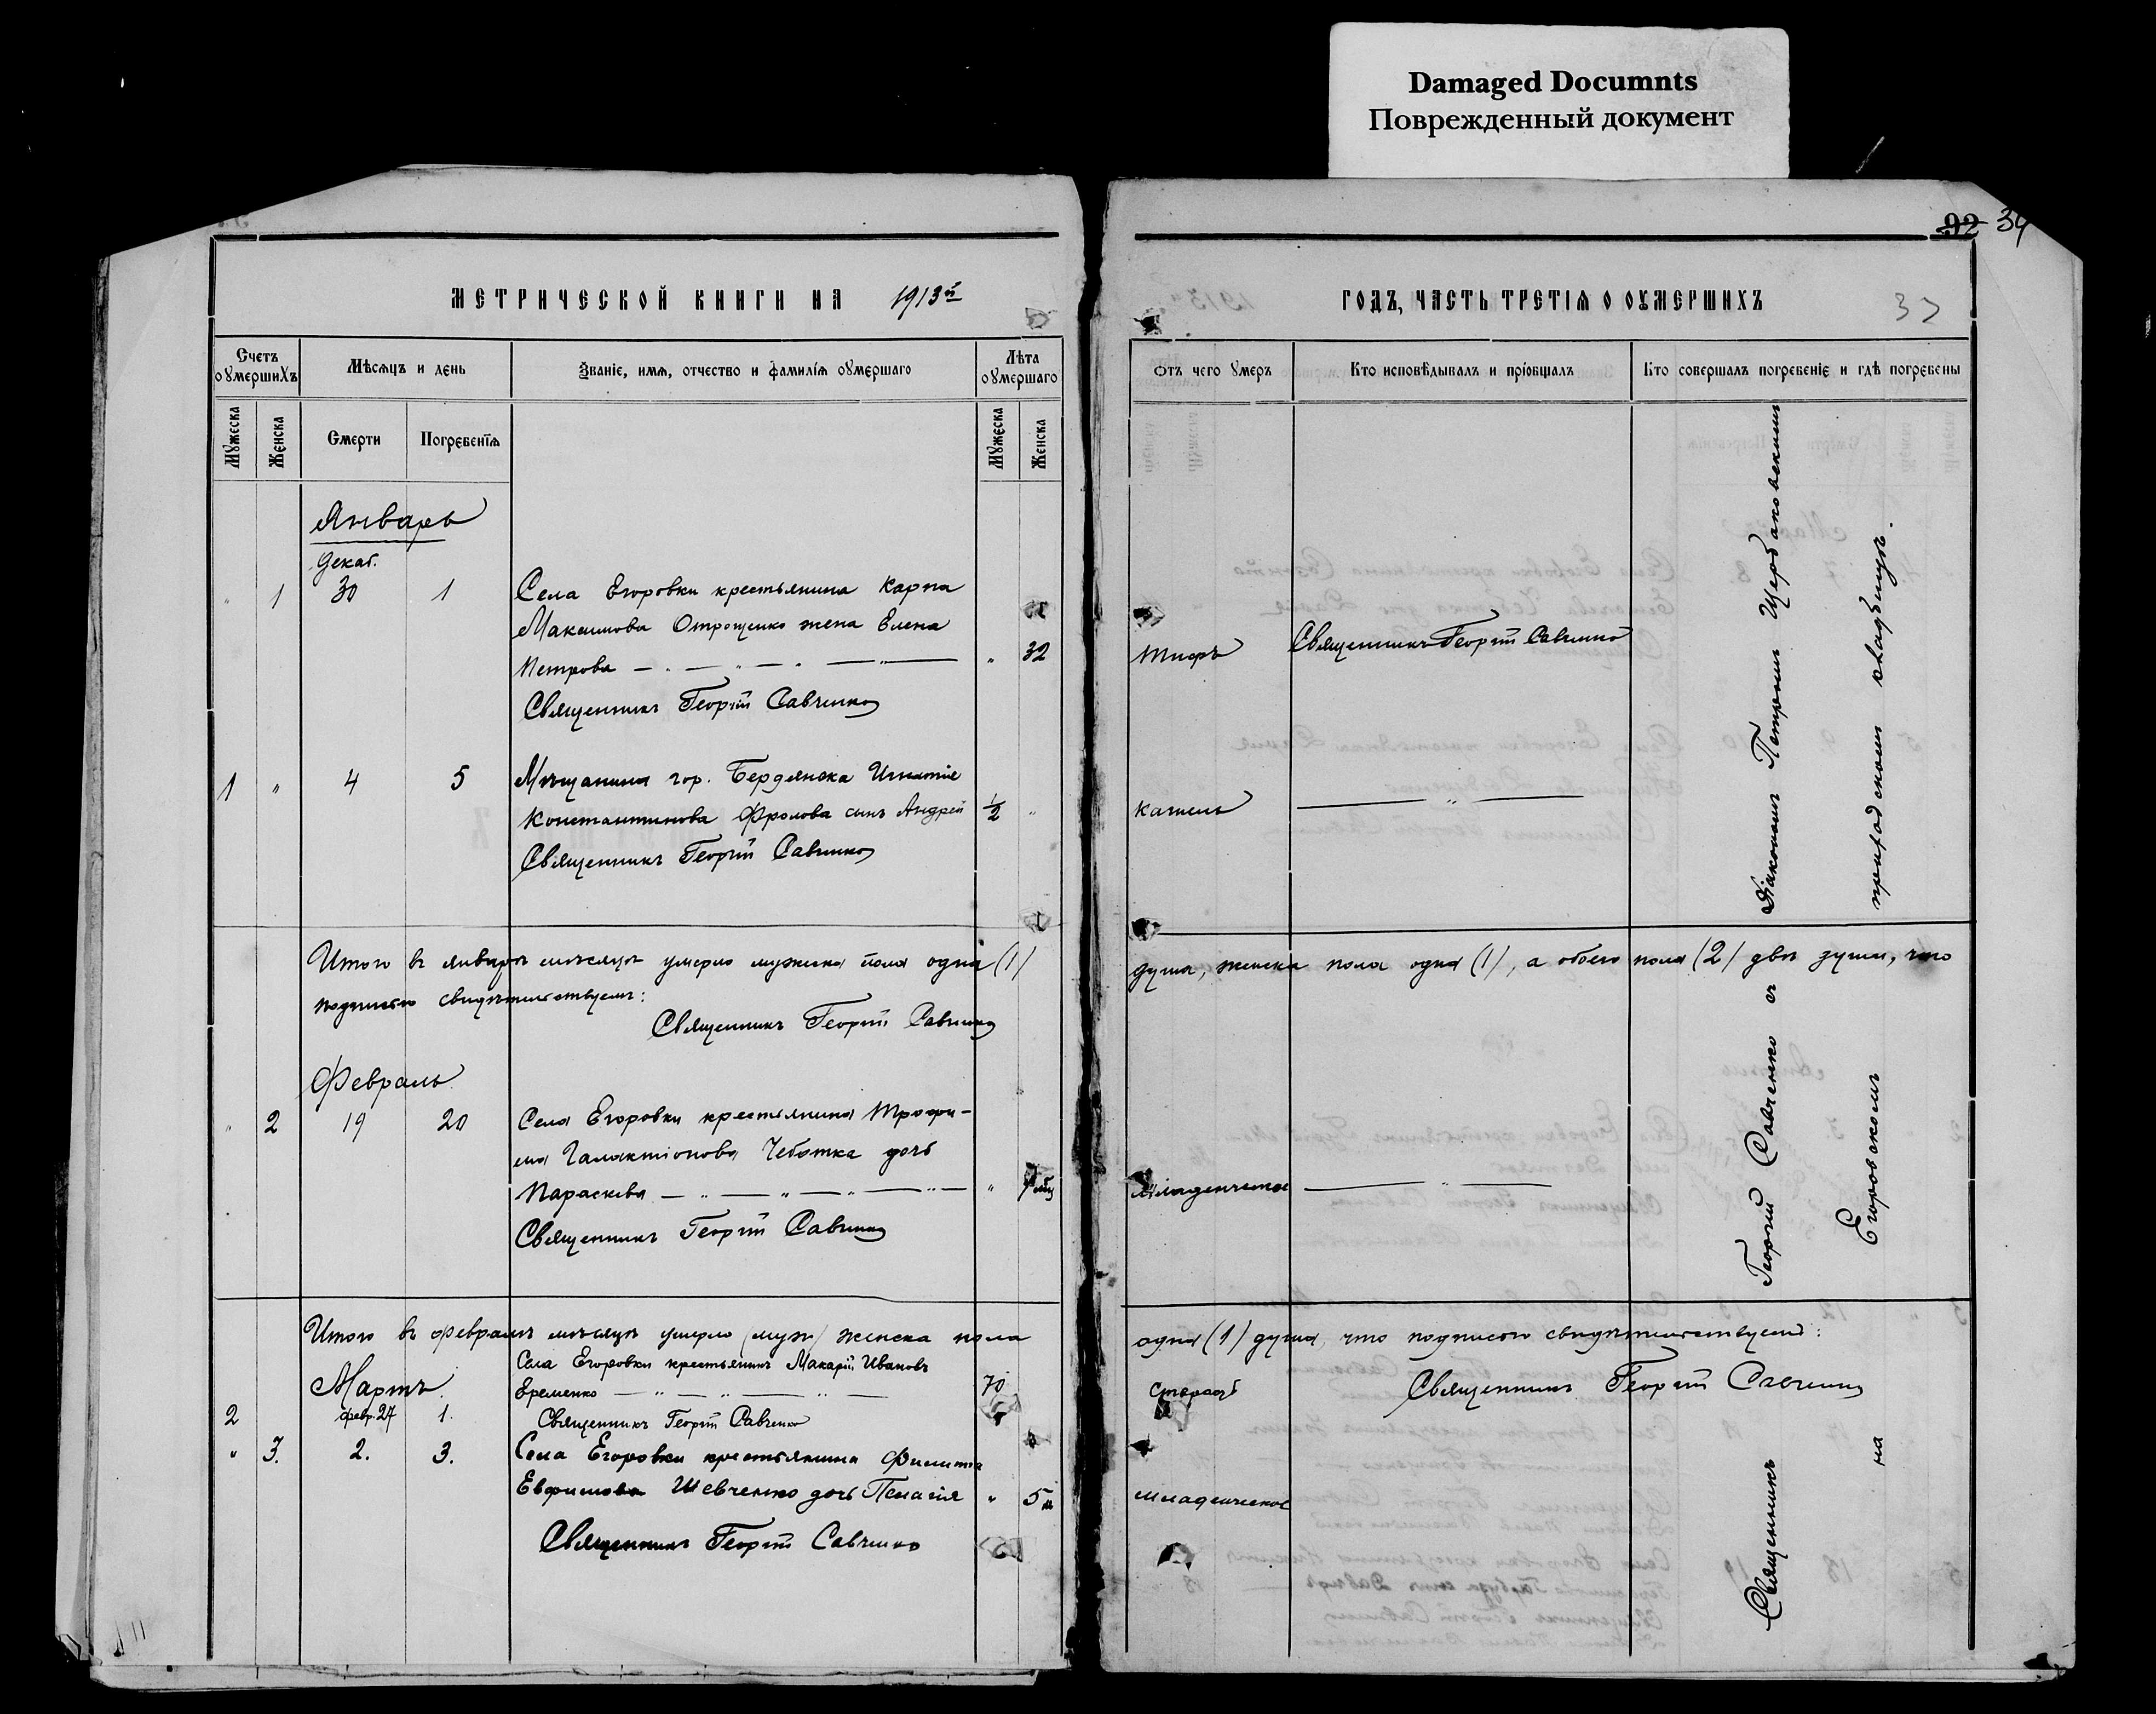 Damaged Documnts
Поврежденный документ
92 34
МЕТРИЧЕСКОЙ КНИГИ НА 1913й
ГОДЪ, ЧАСТЬ ТРЕТІѦ О ОУМЕРШИХЪ
37
Счетъ оумершихъ
Мѣсѧцъ и день
Званіе, имѧ, отчество и фамилїѧ оумершаго
Лѣта оумершаго
Отъ чего умеръ
Кто исповѣдывалъ и пріобщалъ
Кто совершалъ погребеніе и гдѣ погребены
Мужеска
Женска
Смерти
Погребенїѧ
Мужеска
Женска
Январь
Декаб.
" 1 30 1 Села Егоровки крестьянина Карпа
Максимова Отрощенко жена Елена
Петрова — " — " — " — " — " 32 Тифъ Священникъ Георгій Савченко
Священникъ Георгій Савченко
1 " 4 5 Мѣщанина гор. Бердянска Игнатія
Константинова Фролова сынъ Андрей 1/2 " кашель — " —
Священникъ Георгій Савченко
Итого въ январѣ мѣсяцѣ умерло мужска пола одна (1) душа, женска пола одна (1), а обоего пола (2) двѣ души, что
подписью свидѣтельствуемъ:
Священникъ Георгій Савченко
Февраль
" 2 19 20 Села Егоровки крестьянина Трофи-
ма Галактіонова Чеботка дочь
Параскева — " — " — " — " — " младенческое — " —
Священникъ Георгій Савченко
Итого въ февралѣ мѣсяцѣ умерло (муж) женска пола одна (1) душа, что подписью свидѣтельствуемъ:
Священникъ Георгій Савченко
Мартъ.
Села Егоровки крестьянинъ Макарій Ивановъ
Еременко — " — " — " — 70 старость
2 февр. 27 1. Священникъ Георгій Савченко
" 3. 2. 3. Села Егоровки крестьянина Филиппа
Евфимова Шевченко дочь Пелагія " 5 м младенческое
Священникъ Георгій Савченко
Священникъ Георгій Савченко съ Діакономъ Петромъ Щербаковскимъ
на Егоровскомъ приходскомъ кладбищѣ.